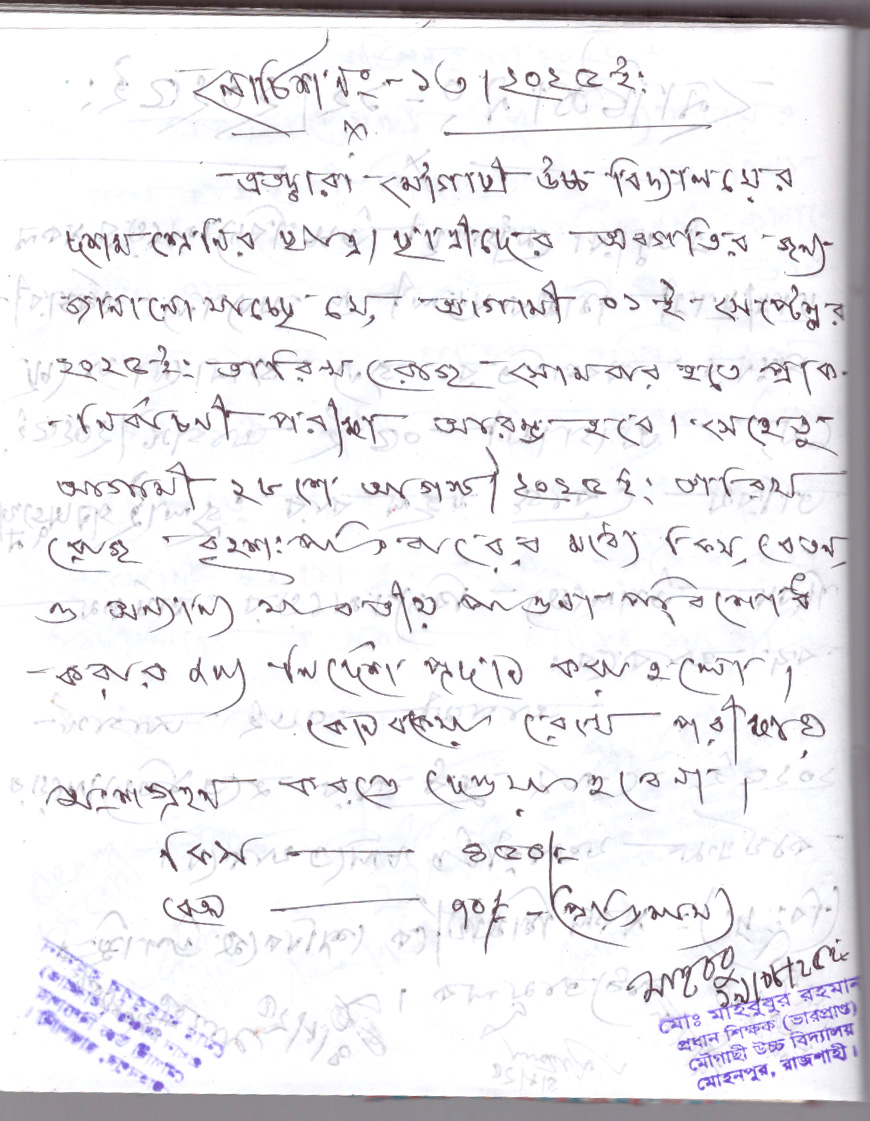 নোটিশ নং- ১৩/২০২৫ ইং
এতদ্বারা মৌগাছী উচ্চ বিদ্যালয়ের
দশম শ্রেনির ছাত্র/ছাত্রীদের অবগতির জন্য
জানানো যাচ্ছে যে, আগামী ০১ ই সেপ্টেম্বর
২০২৫ইং তারিখ রোজ সোমবার হতে প্রাক-
নির্বাচনী পরীক্ষা আরম্ভ হবে। সেহেতু
আগামী ২৮ শে আগস্ট/২০২৫ ইং তারিখ
রোজ বৃহঃস্পতিবারের মধ্যে ফিস, বেতন,
ও অন্যান্য যাবতীয় পাওনা পরিশোধ
করার জন্য নির্দেশ প্রদান করা হলো।
কোন বকেয়া রেখে পরীক্ষায়
অংশগ্রহন করতে দেওয়া হবে না।
ফিস ——— ৪৫০/=
বেতন ——— ৭০/= (প্রতি মাস)
মোঃ মাহবুবুর রহমান
প্রধান শিক্ষক (ভারপ্রাপ্ত)
মৌগাছী উচ্চ বিদ্যালয়
মোহনপুর, রাজশাহী।